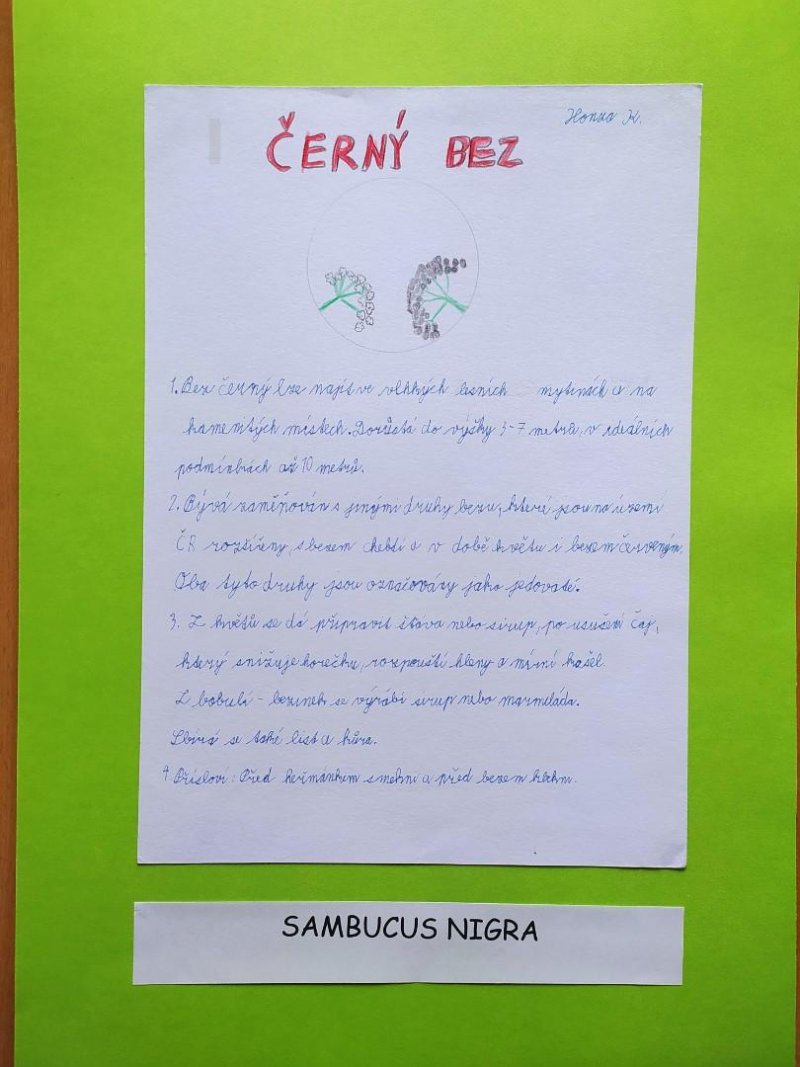 Honza K.
ČERNÝ BEZ
1. Bez černý lze najít ve vlhkých lesních mýtinách a na
kamenitých místech. Dorůstá do výšky 3-7 metrů, v ideálních
podmínkách až 10 metrů.
2. Bývá zaměňován s jinými druhy bezu, které jsou na území
ČR rozšířeny, s bezem chebdí a v době květu i bezem červeným.
Oba tyto druhy jsou označovány jako jedovaté.
3. Z květů se dá připravit šťáva nebo sirup, po usušení čaj,
který snižuje horečku, rozpouští hleny a mírní kašel.
Z bobulí - bezinek se výrábí sirup nebo marmeláda.
Sbírá se také list a kůra.
4 Přísloví: Před heřmánkem smekni a před bezem klekni.
SAMBUCUS NIGRA